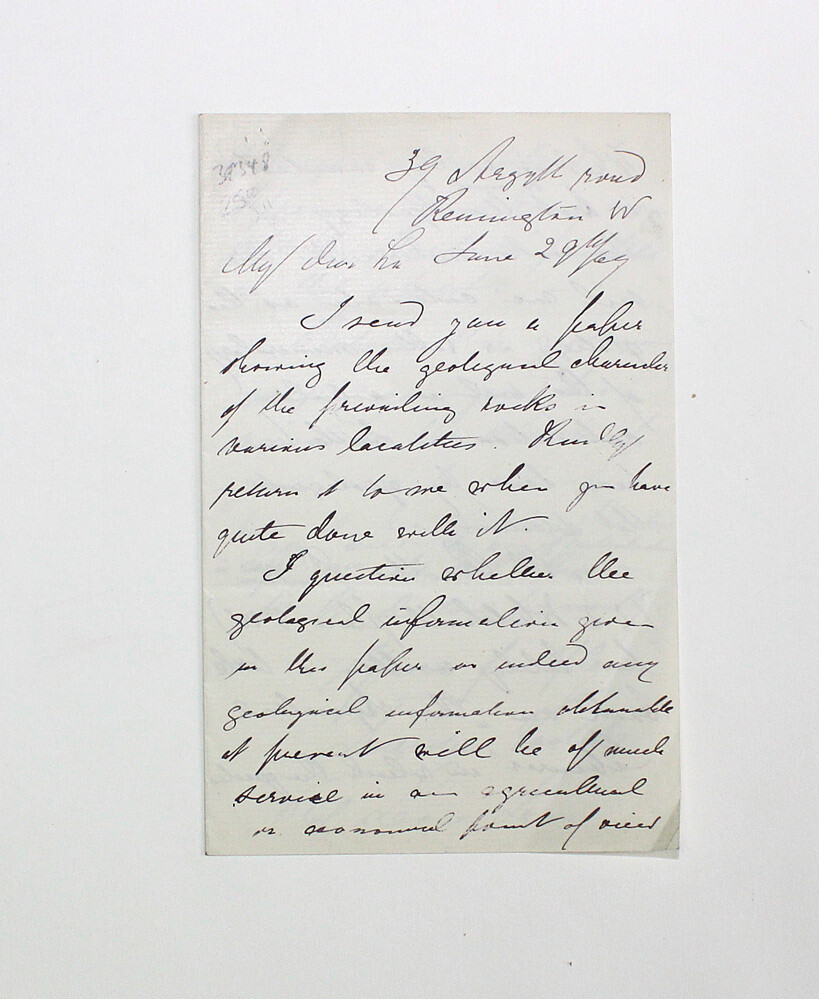 39 Argyll road
Kensington W
My dear Sir June 29th/69
I send you a paper
showing the geological character
of the prevailing rocks in
various localities. Kindly
return it to me when you have
quite done with it.
I question whether the
geological information given
in this paper or indeed any
geological information obtainable
at present will be of much
service in an agricultural
or economical point of view